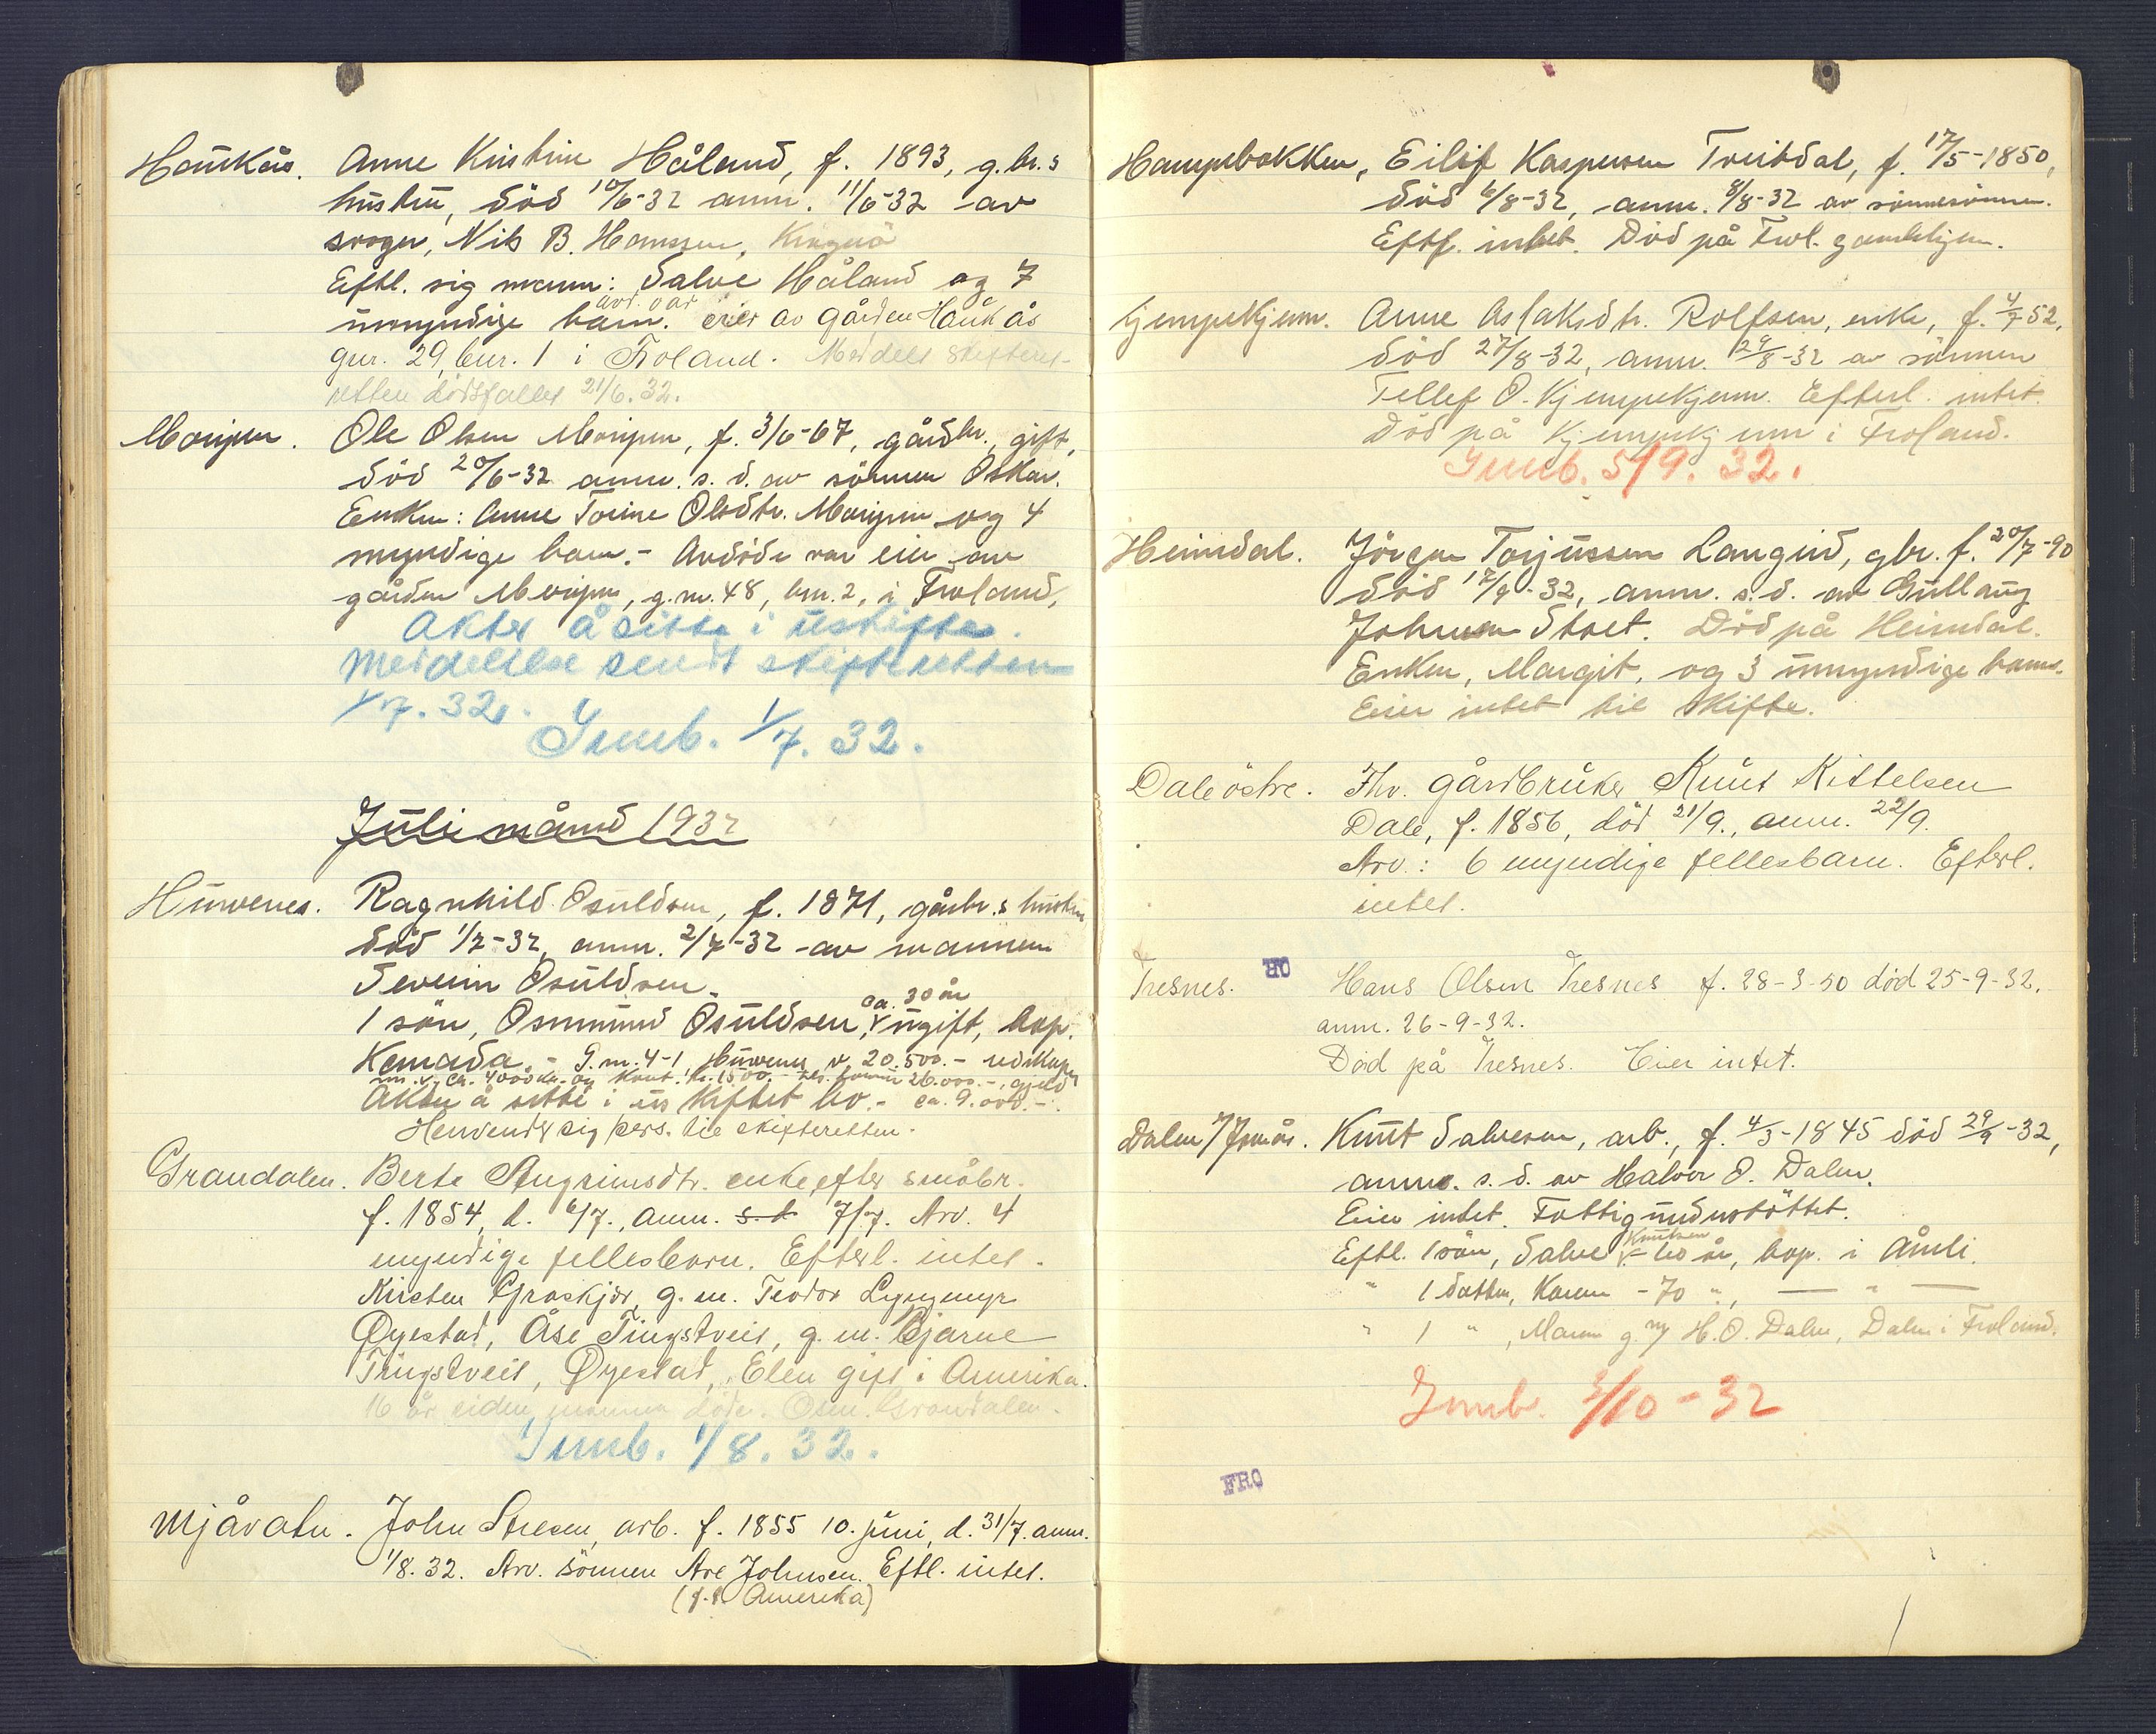 Haukås. Anne Kristine Håland, f. 1893, g.br.s
hustru, död 10/6-32 anm. 11/6-32 av
svoger, Nils B. Hanssen,
Eftl. sig mann: Salve Håland og 7
umyndige barn. avd. var eier av gården Haukås
gnr. 29, bnr. 1 i Froland. Meddelt skifteret-
retten dödsfallet 21/6.32.
Morijen. Ole Olsen Morijen, f. 3/6-67, gårdbr., gift,
död 20/6-32 anm. s. d. av sönnen Oskar.
Enken: Anne Torine Olsdtr. Morijen og 4
myndige barn. - Avdöde var eier av
gården Morijen, g.nr. 48, bnr. 2, i Froland,
Akter å sitte i uskifte.
Meddelelse sendt skifteretten
1/7. 32.
Innb. 1/7. 32.
Juli månd 1932
Hurvenes. Ragnhild Osuldsen, f. 1871, gårbr.s hustru
död 1/7-32, anm. 2/7-32 av mannen
Severin Osuldsen.
1 sön, Osmund Osuldsen, ca. 30 år ugift, bop.
Kanada. - G.nr. 4-1 Hurvenes v. 20.500.- redskaper
m.v. ca. 4000 kr. og kont. kr. 1500. - tils. formue 26.000.-, gjeld
Akter å sitte i uskiftet bo. - ca. 9.000.-.
Henvender sig pers. til skifteretten.
Grandalen. Berte Angrimsdtr. enke efter småbr.
f. 1854, d. 6/7., anm. s. d. 7/7. Arv. 4
myndige fellesbarn. Efterl. intet.
Kirsten Groskjær, g. m. Teodor Lyngmyr
Øyestad, Åse Tingstveit, g. m. Bjarne
Tingstveit, Øyestad, Elen gift i Amerika.
16 år siden mannen döde. Osm. Grandalen.
Innb. 1/8. 32.
Mjåvatn. John Aresen, arb. f. 1855 10. juni, d. 31/7. anm.
1/8. 32. Arv. sönnen Are Johnsen. Eftl. intet.
(f.t. Amerika)
Hampebakken, Eilif Kaspersen Treiddal, f. 17/5-1850,
död 6/8-32, anm. 8/8-32 av sönnesönnen.
Eftf. intet. Död på Frol. gamlehjem.
Kjempekjenn. Anne Aslaksdtr. Rolfsen, enke, f. 4/7 52,
död 27/8-32, anm. 29/8-32 av sönnen
Tellef O. Kjempekjenn. Efterl. intet.
Död på Kjempekjenn i Froland.
Innb. 5/9. 32.
Heimdal. Jörgen Torjussen Langeid, gbr. f. 20/7-90
död 17/9-32, anm. s. d. av Gullaug
Johnsen Stoet. Död på Heimdal.
Enken, Margit, og 3 umyndige barn.
Eier intet til skifte.
Dale östre. Fhv. gårdbruker Knut Kittelsen
Dale, f. 1856, död 21/9., anm. 22/9.
Arv.: 6 myndige fellesbarn. Efterl.
intet.
Tresnes. Hans Olsen Tresnes f. 28-3-50 död 25-9-32.
anm. 26-9-32.
Död på Tresnes. Eier intet.
Dalen Knut Salvesen, arb., f. 4/3-1845 död 29/9-32,
anm. s. d. av Halvor O. Dalen.
Eier intet. Fattigunderstöttet.
Eftl. 1 sön, Salve Knutsen - 60 år, bop. i Åmli.
" 1 datter, Karen - 70 ", — " —
" 1 " , Maren g. m/ H. O. Dalen, Dalen i Froland.
Innb. 3/10-32
FRO